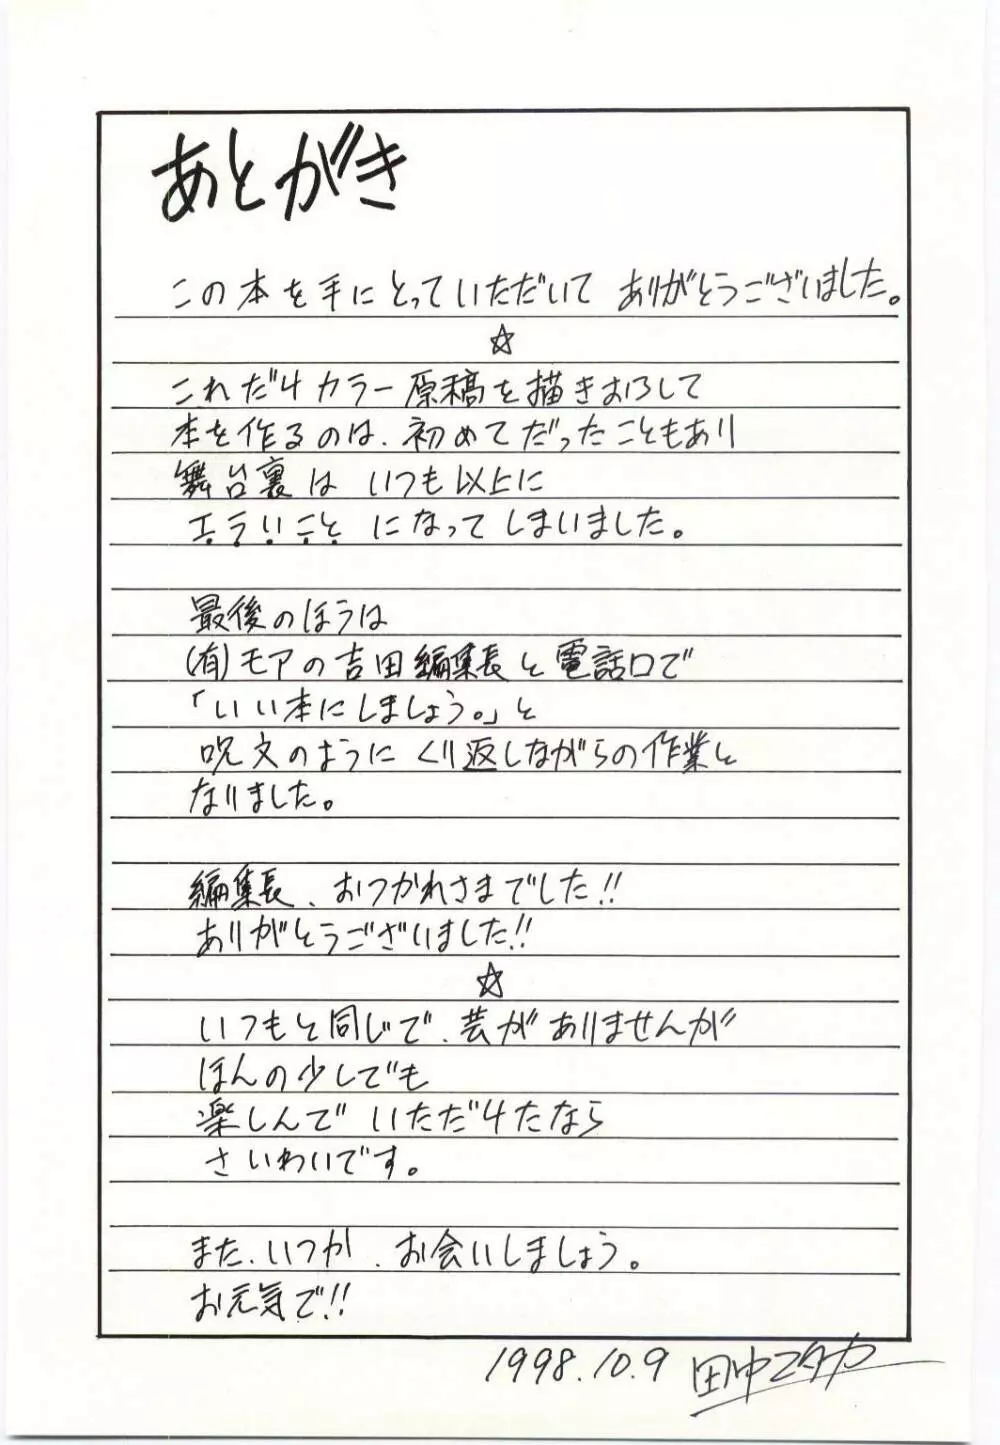 あとがき
この本を手にとっていただいて ありがとうございました。
☆
これだけカラー原稿を描きおろして
本を作るのは、初めてだったこともあり
舞台裏は いつも以上に
エラいこと になってしまいました。
最後のほうは
(有)モアの吉田編集長と電話口で
「いい本にしましょう。」と
呪文のように くり返しながらの作業と
なりました。
編集長、おつかれさまでした!!
ありがとうございました!!
☆
いつもと同じで、芸がありませんが
ほんの少しでも
楽しんで いただけたなら
さいわいです。
また、いつか、お会いしましょう。
お元気で!!
1998.10.9 田中エタカ